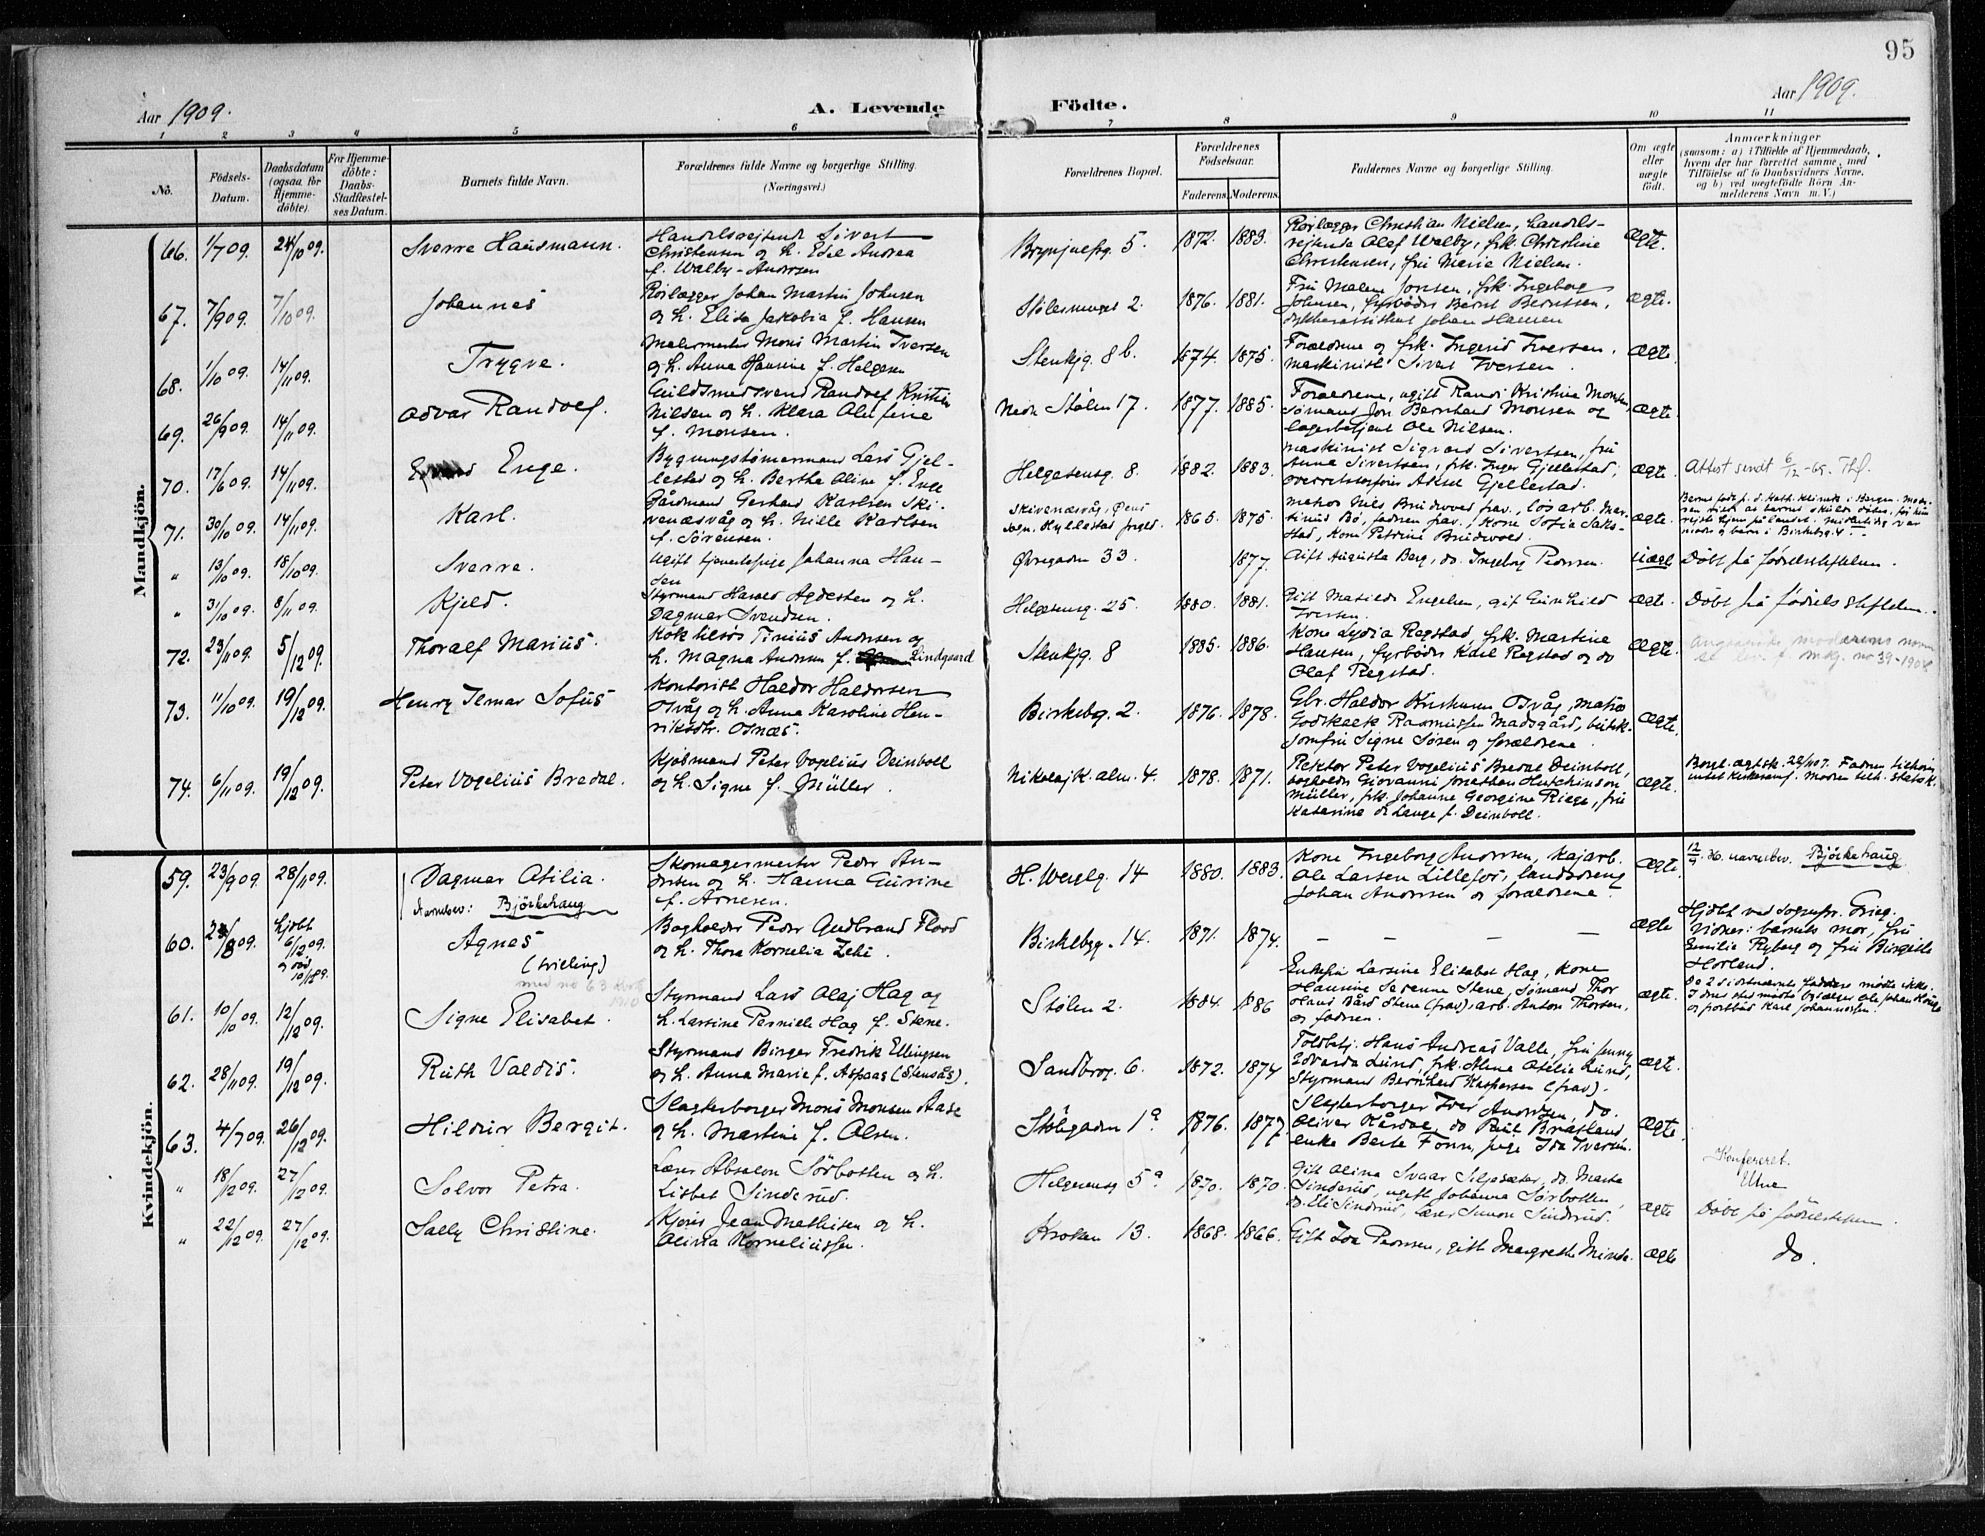 95
Aar 1909.
A. Levende Födte.
Aar 1909.
1 2 3 4 5 6 7 8 9 10 11
No.
Födsels-Datum.
Daabsdatum (ogsaa for Hjemme-döbte)
For Hjemme-döbte: Daabs-Stadfæstel-ses Datum.
Barnets fulde Navn.
Forældrenes fulde Navne og borgerlige Stilling.
(Næringsvei.)
Forældrenes Bopæl.
Forældrenes Födselsaar.
Faderens. Moderens.
Faddernes Navne og borgerlige Stilling.
Om ægte eller uægte födt.
Anmærkninger
(saasom: a) i Tilfælde af Hjemmedaab, hvem der har forrettet samme, med Tilföielse af to Daabsvidners Navne, og b) ved uægtefödte Börn Anmelderens Navn m. V.)
Mandkjön.
66. 1/7 09. 24/10 09. Sverre Hausmann. Handelsreisende Sivert
Christensen og h. Edel Andrea
f. Walby-Andersen
Brynjulfsg. 5. 1872. 1883. Rörlægger Christian Nielsen, handels-
reisende Olaf Walby, frk. Christine
Christensen, fru Marie Nielsen.
ægte.
67. 7/9 09. 7/10 09. Johannes Rörlægger Johan Martin Johnsen
og h. Elisa Jakobia f. Hansen
Stölesmuget 2. 1876. 1881. Fru Malene Jonsen, frk. Ingeborg
Johnsen, fyrböder Bernt Berntsen,
dykkerassistent Johan Hansen
ægte.
68. 1/10 09. 14/11 09. Trygve. Malermester Mons Martin Iversen
og h. Anna Hansine f. Helgesen
Stenkjg. 8 b. 1874. 1875. Forældrene og frk. Ingerid Iversen,
maskinist Sivert Iversen.
ægte
69. 26/9 09. 14/11 09. Advar Randolf. Guldsmedsvend Randolf Kristian
Nielsen og h. Klara Alufine
f. Monsen.
Nedre Stölen 17. 1877. 1885. Forældrene, ugift Randi Kristine Monsen,
sömand Jon Bernhard Monsen og
lagerbetjent Ole Nilsen.
ægte.
70. 17/6 09. 14/11 09. Enge. Bygningstömermand Lars Gjel-
lestad og h. Bertha Aline f. Enge
Helgesensg. 8. 1882. 1883. Maskinist Sigvard Sivertsen, fru
Anna Sivertsen, frk. Inger Gjellestad,
overretssagförer Aksel Gjellestad.
ægte. Attest sendt 6/12-69. Thf.
71. 30/10 09. 14/11 09. Karl. Gårdmand Gerhard Karlsen Ski-
venæsvåg og h. Nille Karlsen
f. Sörensen.
Skivenæsvåg, Öens
sogn, Kyllestad prgld. 1865. 1875. matros Nils Brudevold frav., lös arb. Mar-
tinus Bö, faderen frav., kone Sofia Saks-
stad, kone Petrine Brudevold.
ægte.
" 13/10 09. 18/10 09. Sverre. Ugift tjenestepige Johanna Han-
sen
Övregaden 33. 1877. Gift Augusta Berg, do. Ingeborg Pedersen. uægte Döbt på födselsstiftelsen.
" 31/10 09. 8/11 09. Kjeld. Styrmand Harald Agdesten og h.
Dagmar Svendsen.
Helgesensg. 25. 1880. 1881. Gift Matilde Engelsen, gift Gunhild
Iversen.
ægte. Döbt på födselsstiftelsen.
72. 23/11 09. 5/12 09. Thoralf Marius. Kok tilsös Tinius Andersen og
h. Magna Andersen f. Lindgaard
Stenkjg. 8 1885. 1886. Kone Lydia Regstad, frk. Martine
Hansen, fyrböder Karl Regstad og do
Olaf Regstad.
ægte. angaaende moderens navn
no 39-1908
73. 11/10 09. 19/12 09. Henry Ilmar Sofus Kontorist Haldor Haldorsen
Osvåg og h. Anna Karoline Hen-
riksdtr. Osnæs.
Birkebg. 2. 1876. 1878. Gbr. Haldor Kristensen Osvåg, matros
Godskalk Rasmussen Madsgård, butik-
jomfru Signe Sösen og forældrene
ægte.
74. 6/11 09. 19/12 09. Peter Vogelius Bredal. Kjöbmand Peter Vogelius Deinboll
og h. Signe f. Müller.
Nikolajk. alm. 4. 1878. 1871. Rektor Peter Vogelius Bredal Deinboll,
bogholder Giovanni Jonathan Hutchinson
Müller, frk. Johanne Georgine Riege, fru
Katarina de Lange f. Deinboll.
ægte. Borgl. ægtsk. 22/1 07. Faderen tilhörer
intet kirkesamf. Moderen tilh. statsk.
Kvindekjön.
59. 23/9 09. 28/11 09. Dagmar Otilia.
Navnebev: Björkehaug
Skomagermester Peder An-
dersen og h. Hanna Gurine
f. Arnesen.
H. Wergelg. 14 1880. 1883. Kone Ingeborg Andersen, kajarb.
Ole Larsen Lillefos, landsdreng
Johan Andersen og forældrene
ægte. navnebev. Björkehaug
60. 8 09. hjdbt
6/12 09.
Agnes
(tvilling)
med no 63
1910
Bogholder Peder Gudbrand Flood
og h. Thora Kornelia Zeti.
Birkebg. 14. 1871. 1874. — — — — ægte Hjdbt ved sognepr. Grieg.
Vidner: barnets mor, fru
Emilie Ryberg og fru Birgitte
Horland.
61. 10/10 09. 12/12 09. Signe Elisabet. Styrmand Lars Olaj Hag og
h. Larsine Pernille Hag f. Stene.
Stölen 2. 1884. 1886 Enkefru Larsine Elisabet Hag, kone
Hansine Susanne Stene, Sömand Thor
Hans Bård Stene (frav) arb. Anton Thorsen,
og faderen.
ægte. Do 2 sidstnævnte faddere mödte ikke.
I deres sted mödte Ole Johan
og postbud Karl Johannesen.
62. 28/11 09. 19/12 09. Ruth Valdis. Styrmand Birger Fredrik Ellingsen
og h. Anna Marie f. Aspaas (Stensås).
Sandbrog. 6. 1872. 1874 Toldbtj. Hans Andreas Valle, fru Jenny
Edvarda Lund, frk. Alma Otilie Lund,
Styrmand Bernhard Kaspersen (frav).
ægte.
63. 4/7 09. 26/12 09. Hildur Bergit. Slagterborger Mons Monsen Aase
og h. Martine f. Olsen.
Stölegaden 1a 1876. 1877. Slagterborger Iver Andersen, do.
Oliver Kårdal, do Paul Bratland
enke Berte Fonn, pige Ida Iversen.
ægte.
" 18/12 09. 27/12 09. Solvor Petra. Lærer Absalon Sörbotten og h.
Lisbet Sinderud.
Helgesensg 5a 1870. 1870. Gift Olina Svaar Seljesæter, do. Marte
Sinderud, ugift Johanna Sörbotten,
do. Eli Sinderud, lærer Simon Sinderud.
ægte Konfereret.
Utne
Döbt på födselsstiftelsen
" 22/12 09. 27/12 09. Sally Christine. Kjöris Jean Mathisen og h.
Olivia Korneliussen.
Kroken 13. 1868. 1866. Gift Ida Pedersen, gift Margrethe Minde. ægte do.